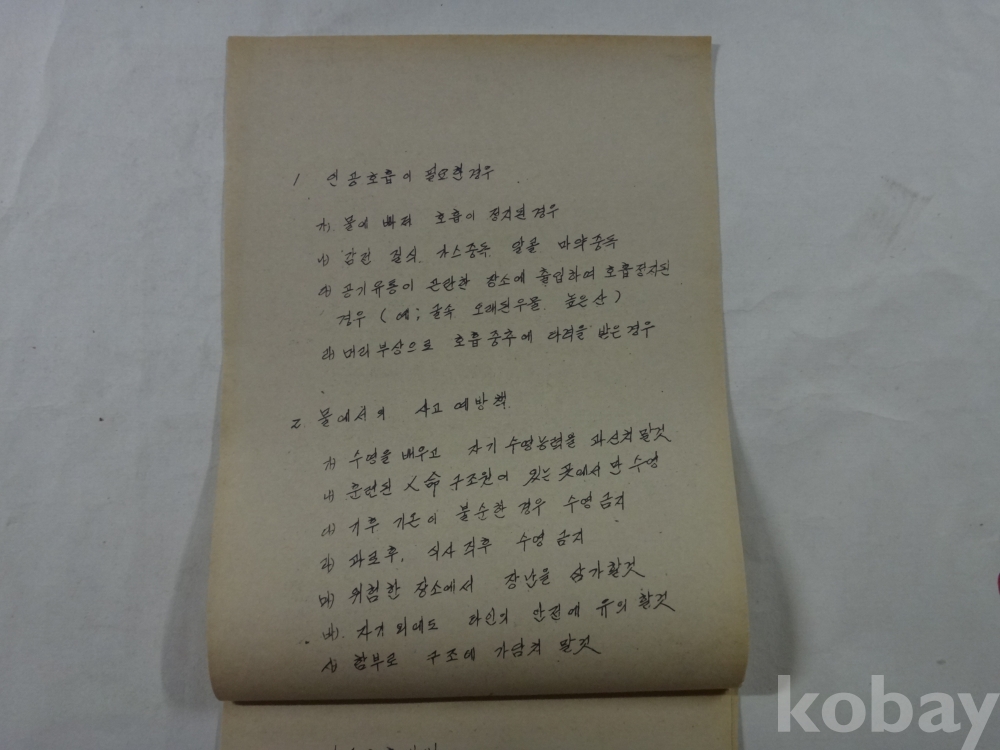 1 인공호흡이 필요한경우
가). 물에 빠져 호흡이 정지된 경우
나) 감전 질식. 가스중독. 알콜 마약중독
다) 공기유통이 곤란한 장소에 출입하여 호흡정지된
경우 ( 예; 굴속. 오래된우물. 높은산 )
라) 머리부상으로 호흡중추에 타격을 받은경우
2. 물에서의 사고 예방책.
가) 수영을 배우고 자기 수영능력을 과신치말것
나) 훈련된 人命구조원이 있는 곳에서만 수영
다) 기후 기온이 불순한 경우 수영금지
라) 과로후, 식사직후 수영 금지
마) 위험한 장소에서 장난을 삼가할것
바). 자기외에도 타인의 안전에 유의할것
사) 함부로 구조에 가담치 말것
kobay